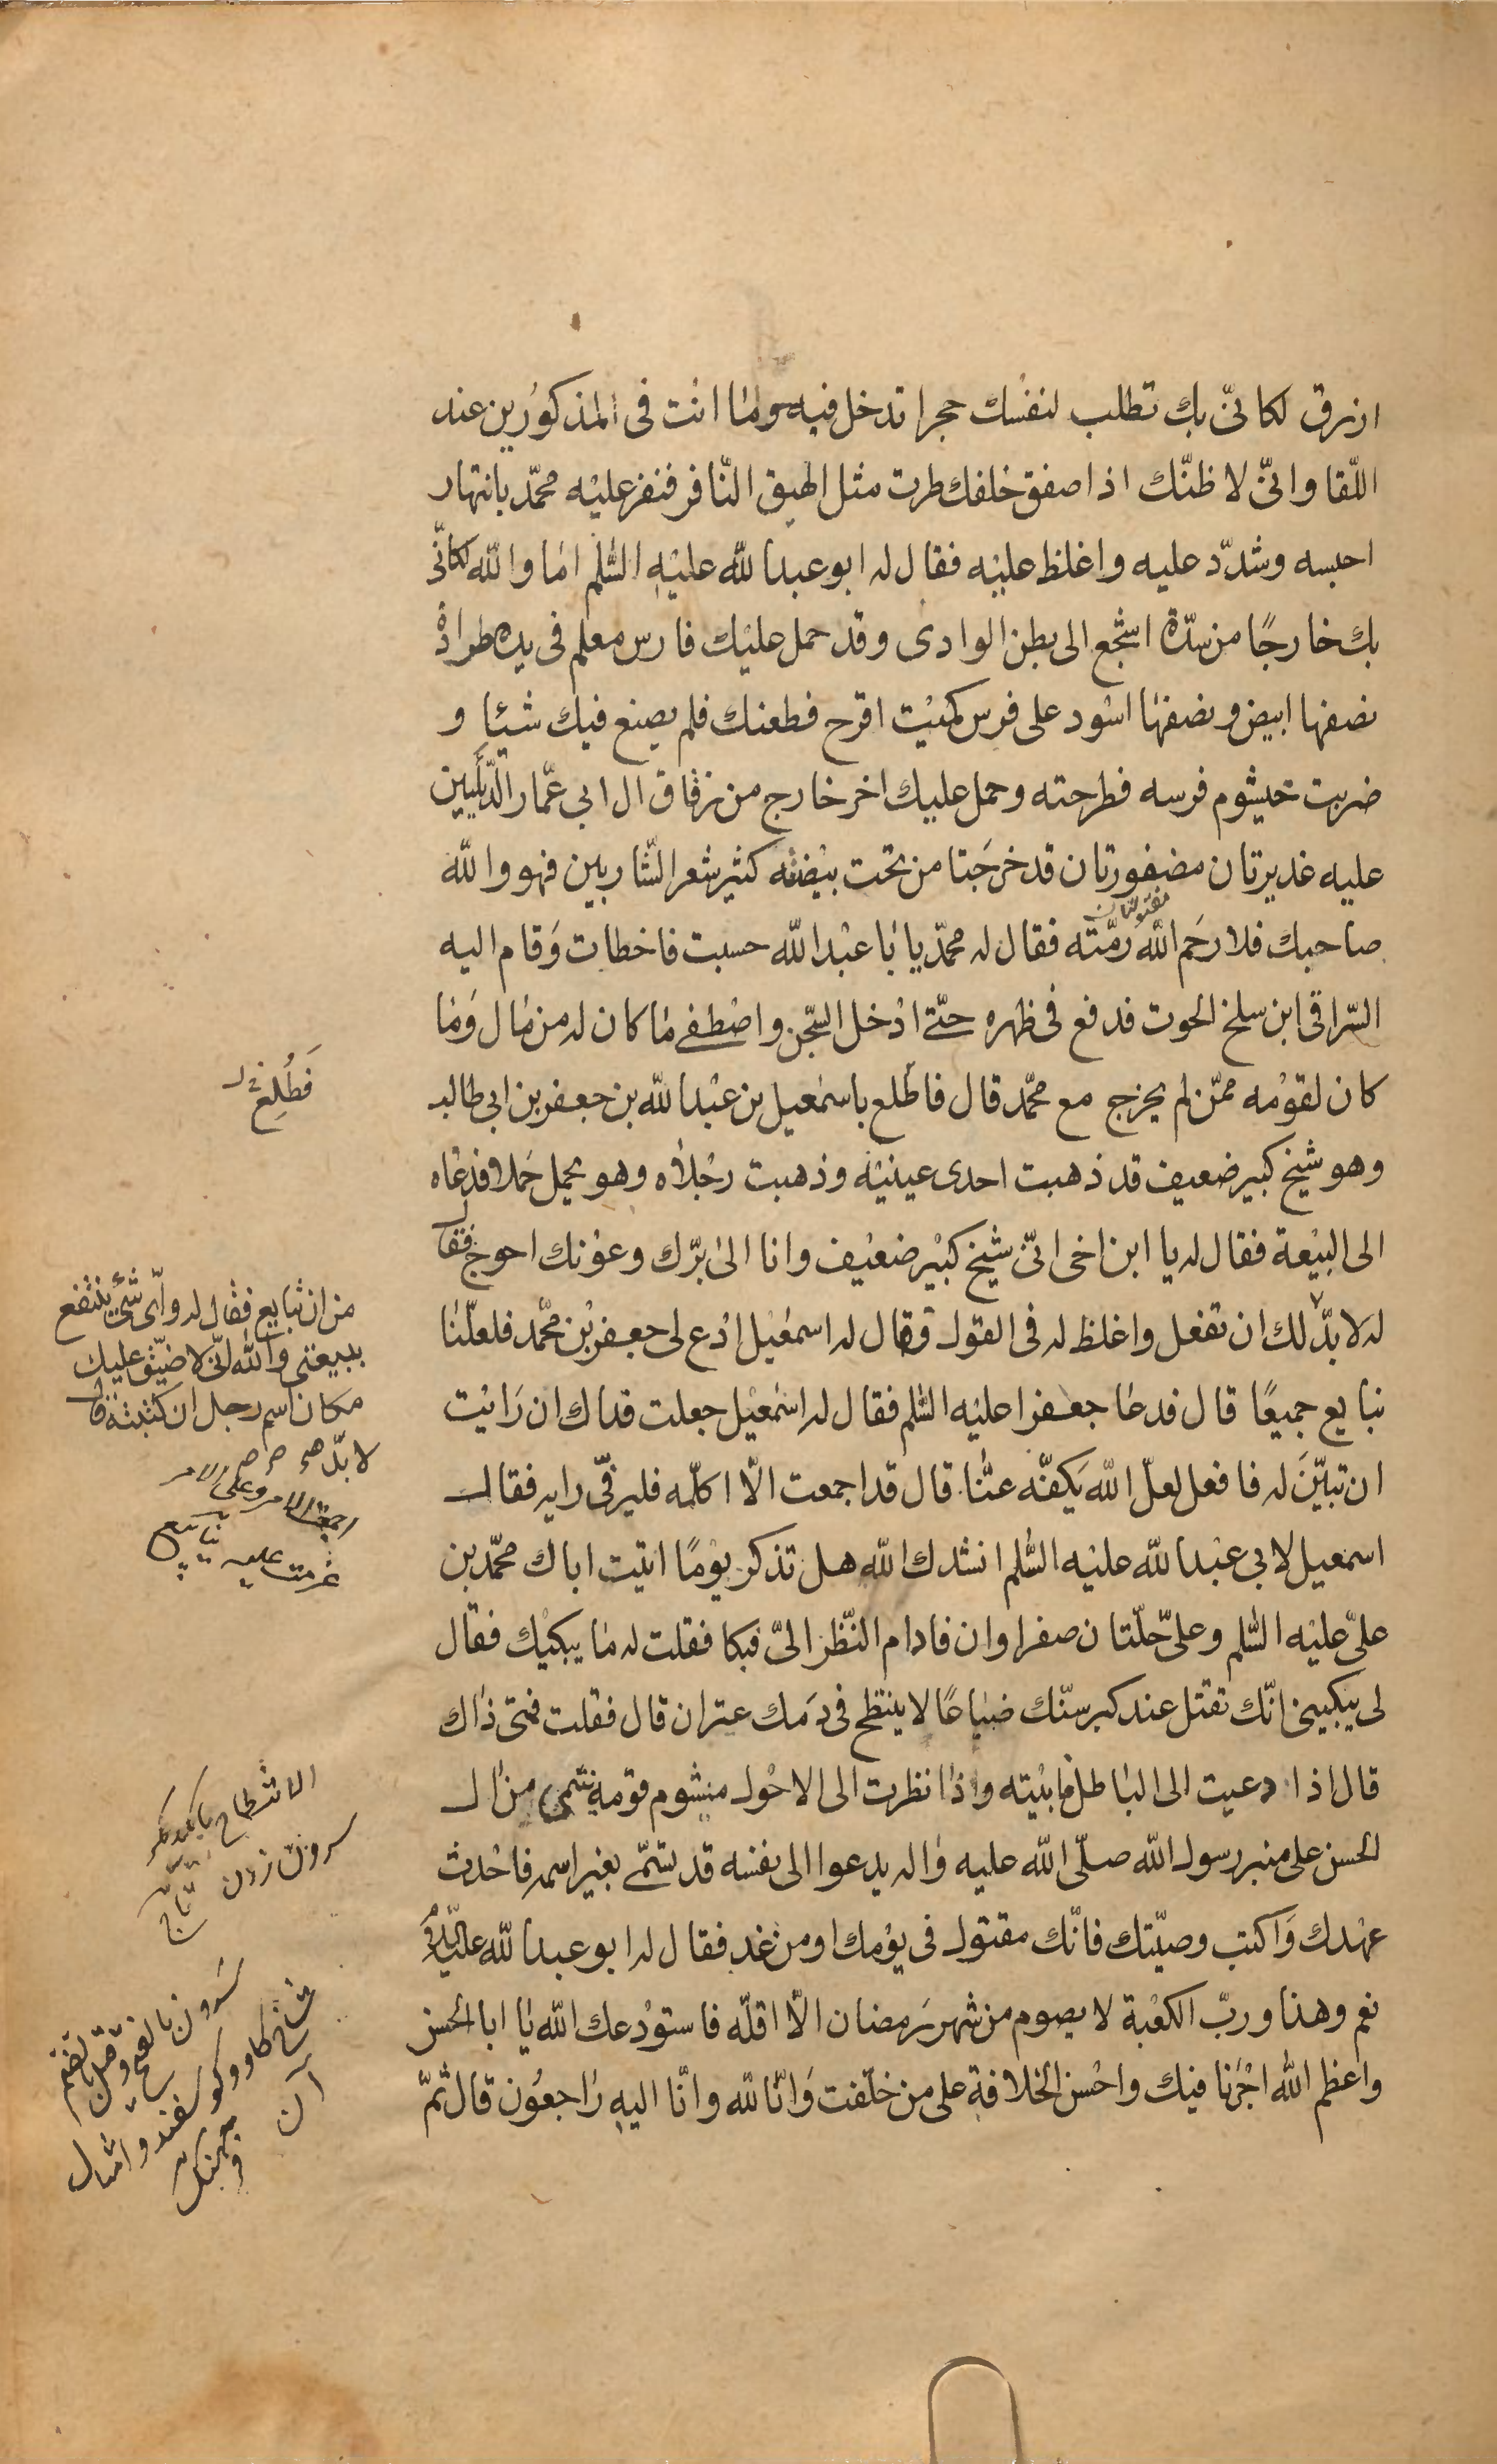 ازرق لكانّى بك تطلب لنفسك حجرا تدخل فيه وما انت فى المذكورين عند
اللّقا وانّى لاظنّك اذا صفق خلفك طرت مثل الهيق النّافر فنفر عليه محمّد بانتهار
احبسه وشدّد عليه واغلظ عليه فقال له ابو عبدالله عليه السّلم اما والله لكانّى
بك خارجًا من سدّة اشجع الى بطن الوادى وقد حمل عليك فارس معلم فى يده طرادة
نصفها ابيض ونصفها اسود على فرس كميت اقرح فطعنك فلم يصنع فيك شيئا و
ضربت خيشوم فرسه فطرحته وحمل عليك اخر خارج من زقاق ال ابى عمّار الدّئليين
عليه غديرتان مضفورتان قد خرجتا من تحت بيضته كثير شعر الشّاربين فهو والله
صاحبك فلا رحم الله رمّته فقال له محمّد يا با عبدالله حسبت فاخطات وقام اليه
السّراقى ابن سلخ الحوت فدفع فى ظهره حتّى ادخل السّجن واصطفى ما كان له من مال وما
كان لقومه ممّن لم يخرج مع محمّد قال فاطلع باسمعيل بن عبدالله بن جعفر بن ابى طالب
وهو شيخ كبير ضعيف قد ذهبت احدى عينيه وذهبت رجلاه وهو يحمل حملا فدعاه
الى البيعة فقال له يا ابن اخى انّى شيخ كبير ضعيف وانا الى برّك وعونك احوج فقال
له لا بدّ لك ان تفعل واغلظ له فى القول فقال له اسمعيل ادع لى جعفر بن محمّد فلعلّنا
نبايع جميعًا قال فدعا جعفرا عليه السّلم فقال له اسمعيل جعلت فداك ان رايت
ان تبيّن له فافعل لعلّ الله يكفّه عنّا قال قد اجمعت الّا اكلّمه فلير فىّ رايه فقال
اسمعيل لابى عبدالله عليه السّلم انشدك الله هل تذكر يومًا اتيت اباك محمّد بن
علىّ عليه السّلم وعلىّ حلّتان صفراوان فادام النّظر الىّ فبكا فقلت له ما يبكيك فقال
لى يبكينى انّك تقتل عند كبر سنّك ضياعًا لا ينتطح فى دمك عنزان قال فقلت فمتى ذاك
قال اذا دعيت الى الباطل فابيته واذا نظرت الى الاحول مشوم قومه ينتمى من ال
الحسن على منبر رسول الله صلّى الله عليه واله يدعوا الى نفسه قد تسمّى بغير اسمه فاحدث
عهدك واكتب وصيّتك فانّك مقتول فى يومك او من غد فقال له ابو عبدالله عليه السّلم
نعم وهذا وربّ الكعبة لا يصوم من شهر رمضان الّا اقلّه فاستودعك الله يا ابا الحسن
واعظم الله اجرنا فيك واحسن الخلافة على من خلّفت وانّا لله وانّا اليه راجعون قال ثمّ
فطلع
من ان تبايع فقال له واىّ شئ ينتفع
ببيعتى والله انّى لاضيّق عليك
مكان اسم رجل ان كتبته قال
لا بدّ
اجمعت الامر وعلى الامر
عزمت عليه
سرون زدن
سرون بالفتح وقيل بالضم
شاخ كاو وكوسفند وامثال
آن